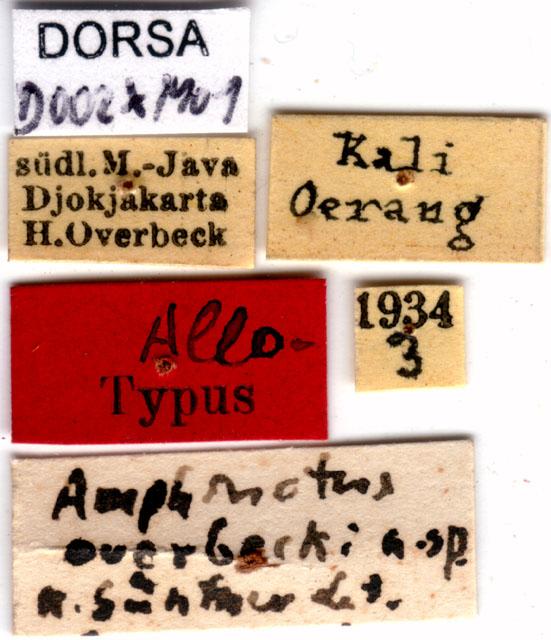 DORSA
südl. M.-Java
Djokjakarta
H. Overbeck
Kali
Oerang
Allo-
Typus
1934
3
Amphinotus
overbecki n.sp.
K. Günther det.